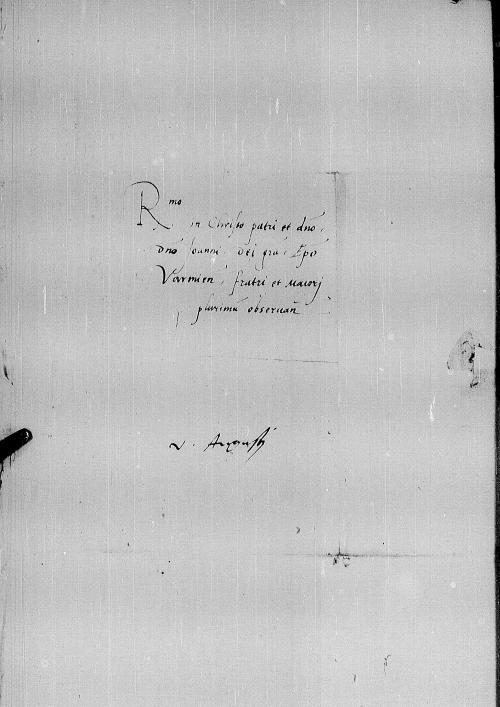 Rmo
in Christo patri et dno
dno Joanni Dei gra Epo
Varmien fratri et maiorj
plurimu obseruan
Augusti